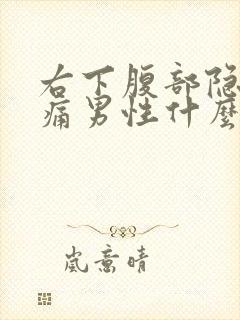 右下腹部隐
痛男性什麼
岚意晴